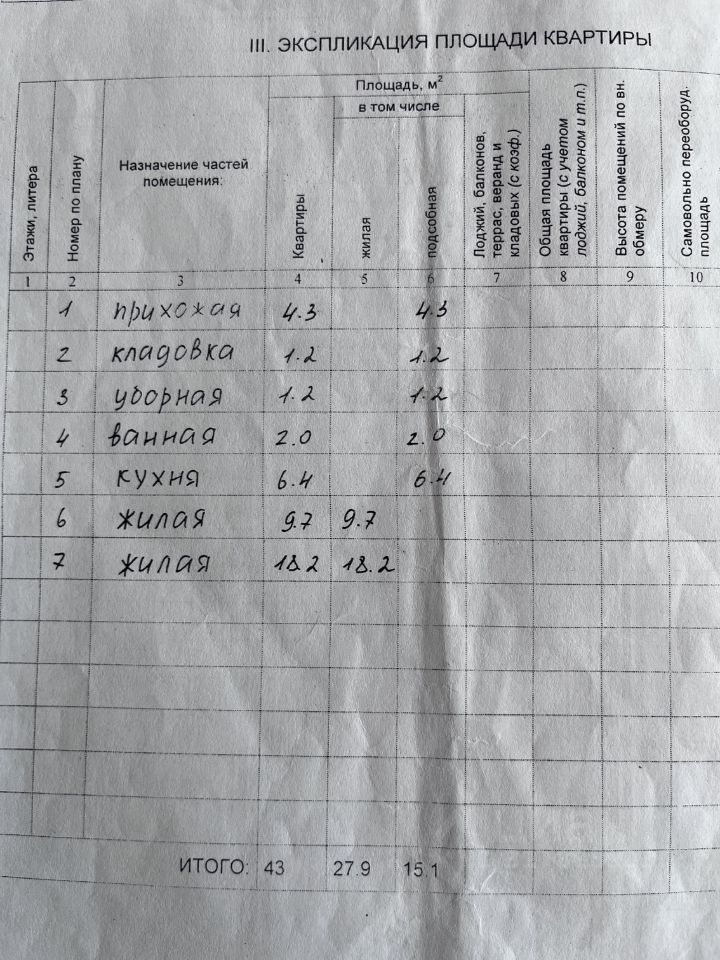 III. ЭКСПЛИКАЦИЯ ПЛОЩАДИ КВАРТИРЫ
Этажи, литера
Номер по плану
Назначение частей помещения:
Площадь, м²
Квартиры
в том числе
жилая
подсобная
Лоджий, балконов, террас, веранд и кладовых (с коэф.)
Общая площадь квартиры (с учетом лоджий, балконом и т.п.)
Высота помещений по вн. обмеру
Самовольно переоборуд. площадь
1 2 3 4 5 6 7 8 9 10
1 прихожая 4.3 4.3
2 кладовка 1.2 1.2
3 уборная 1.2 1.2
4 ванная 2.0 2.0
5 кухня 6.4 6.4
6 жилая 9.7 9.7
7 жилая 18.2 18.2
ИТОГО: 43 27.9 15.1